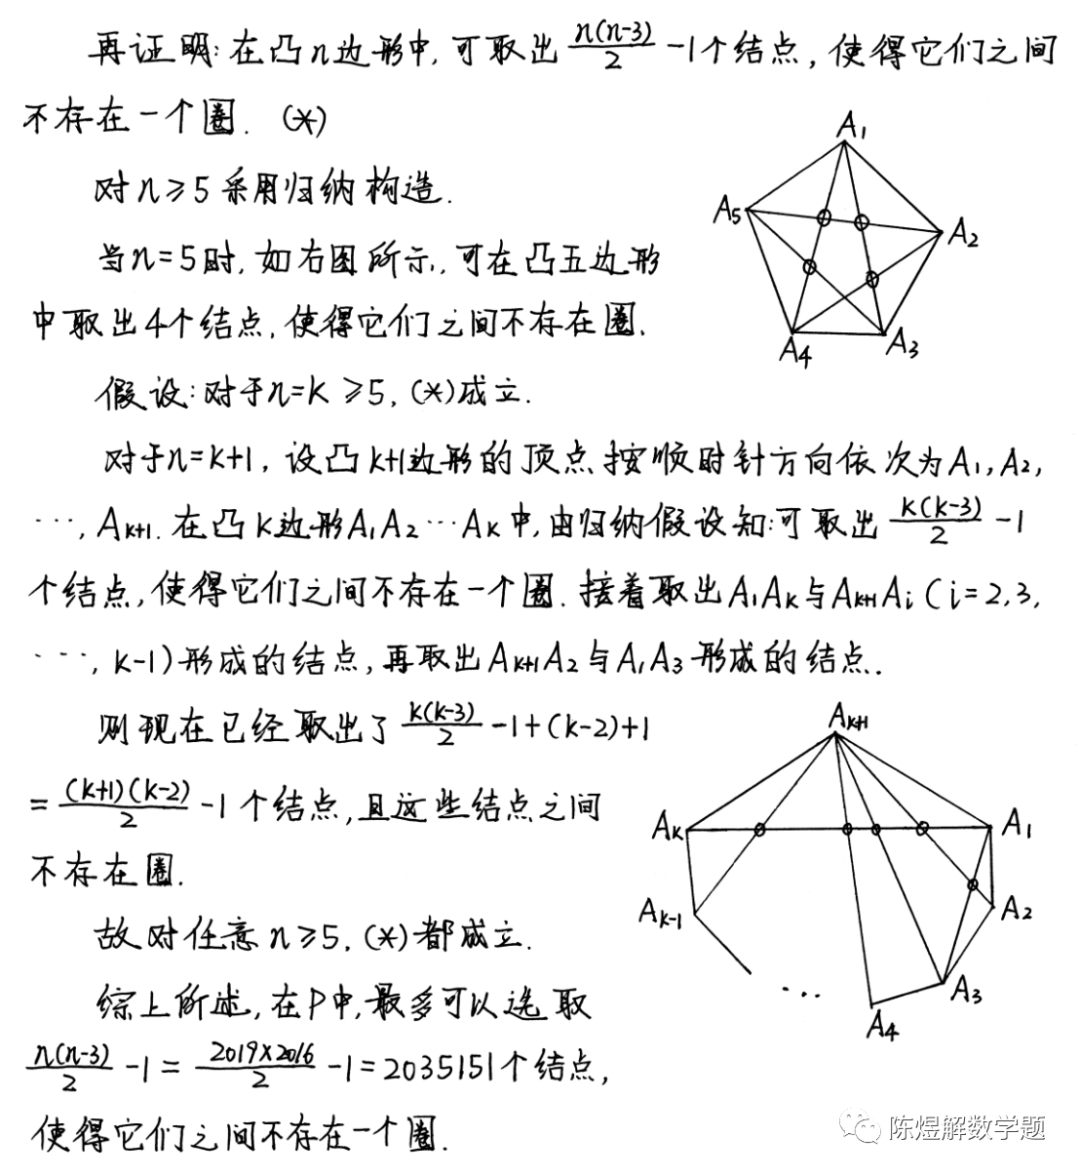 再证明:在凸n边形中,可取出 n(n-3)/2 -1个结点,使得它们之间
不存在一个圈. (*)
对n≥5采用归纳构造.
当n=5时,如右图所示,可在凸五边形
中取出4个结点,使得它们之间不存在圈.
A₁
A₅
A₂
A₄
A₃
假设:对于n=k≥5,(*)成立.
对于n=k+1,设凸k+1边形的顶点按顺时针方向依次为A₁,A₂,
…,Aₖ₊₁.在凸k边形A₁A₂…Aₖ中,由归纳假设知:可取出 k(k-3)/2 -1
个结点,使得它们之间不存在一个圈.接着取出A₁Aₖ与Aₖ₊₁Aᵢ(i=2,3,
…,k-1)形成的结点,再取出Aₖ₊₁A₂与A₁A₃形成的结点.
则现在已经取出了 k(k-3)/2 -1+(k-2)+1
= (k+1)(k-2)/2 -1个结点,且这些结点之间
不存在圈.
Aₖ₊₁
Aₖ
A₁
Aₖ₋₁
A₂
...
A₃
A₄
故对任意n≥5,(*)都成立.
综上所述,在P中,最多可以选取
n(n-3)/2 -1= 2019×2016/2 -1=2035151个结点,
使得它们之间不存在一个圈.
陈煜解数学题